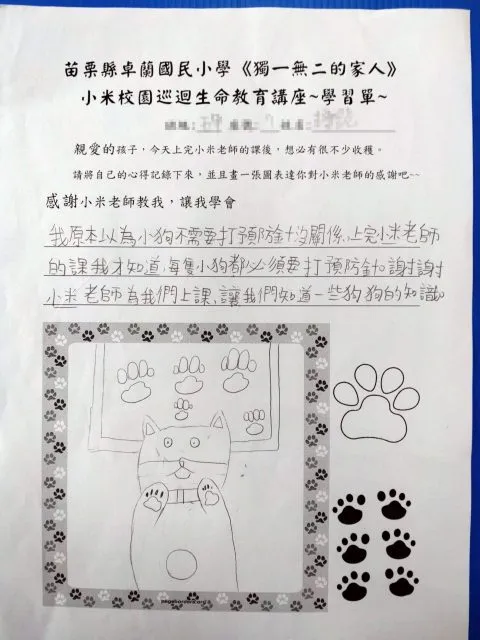 苗栗縣卓蘭國民小學《獨一無二的家人》
小米校園巡迴生命教育講座~學習單~
親愛的孩子,今天上完小米老師的課後,想必有很不少收穫。
請將自己的心得記錄下來,並且畫一張圖表達你對小米老師的感謝吧~~
感謝小米老師教我,讓我學會
我原本以為小狗不需要打預防針也沒關係,上完小米老師
的課我才知道,每隻小狗都必須要打預防針。謝謝
小米老師為我們上課,讓我們知道一些狗狗的知識。
pageborders.org